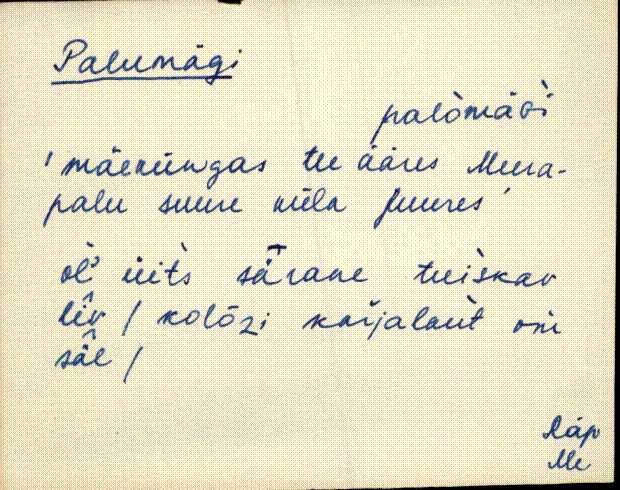 Palumägi
palòmäGì
'mäeküngas tee ääres Meera-
palu suure küla juures'
öl̀ üit̀s särane tuìskav
liv / kolõzi karjalaut om
säl /
Räp
Me